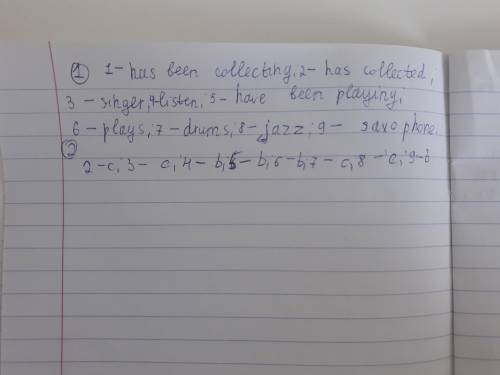 ① 1- has been collecting, 2- has collected;
3 - singer, 4 listen, 5- have been playing;
6 - plays, 7 - drums, 8 - jazz; 9 - saxophone.
② 2-c, 3- c, 4- b, 5- b, 6-b, 7- c, 8 - c, 9-b